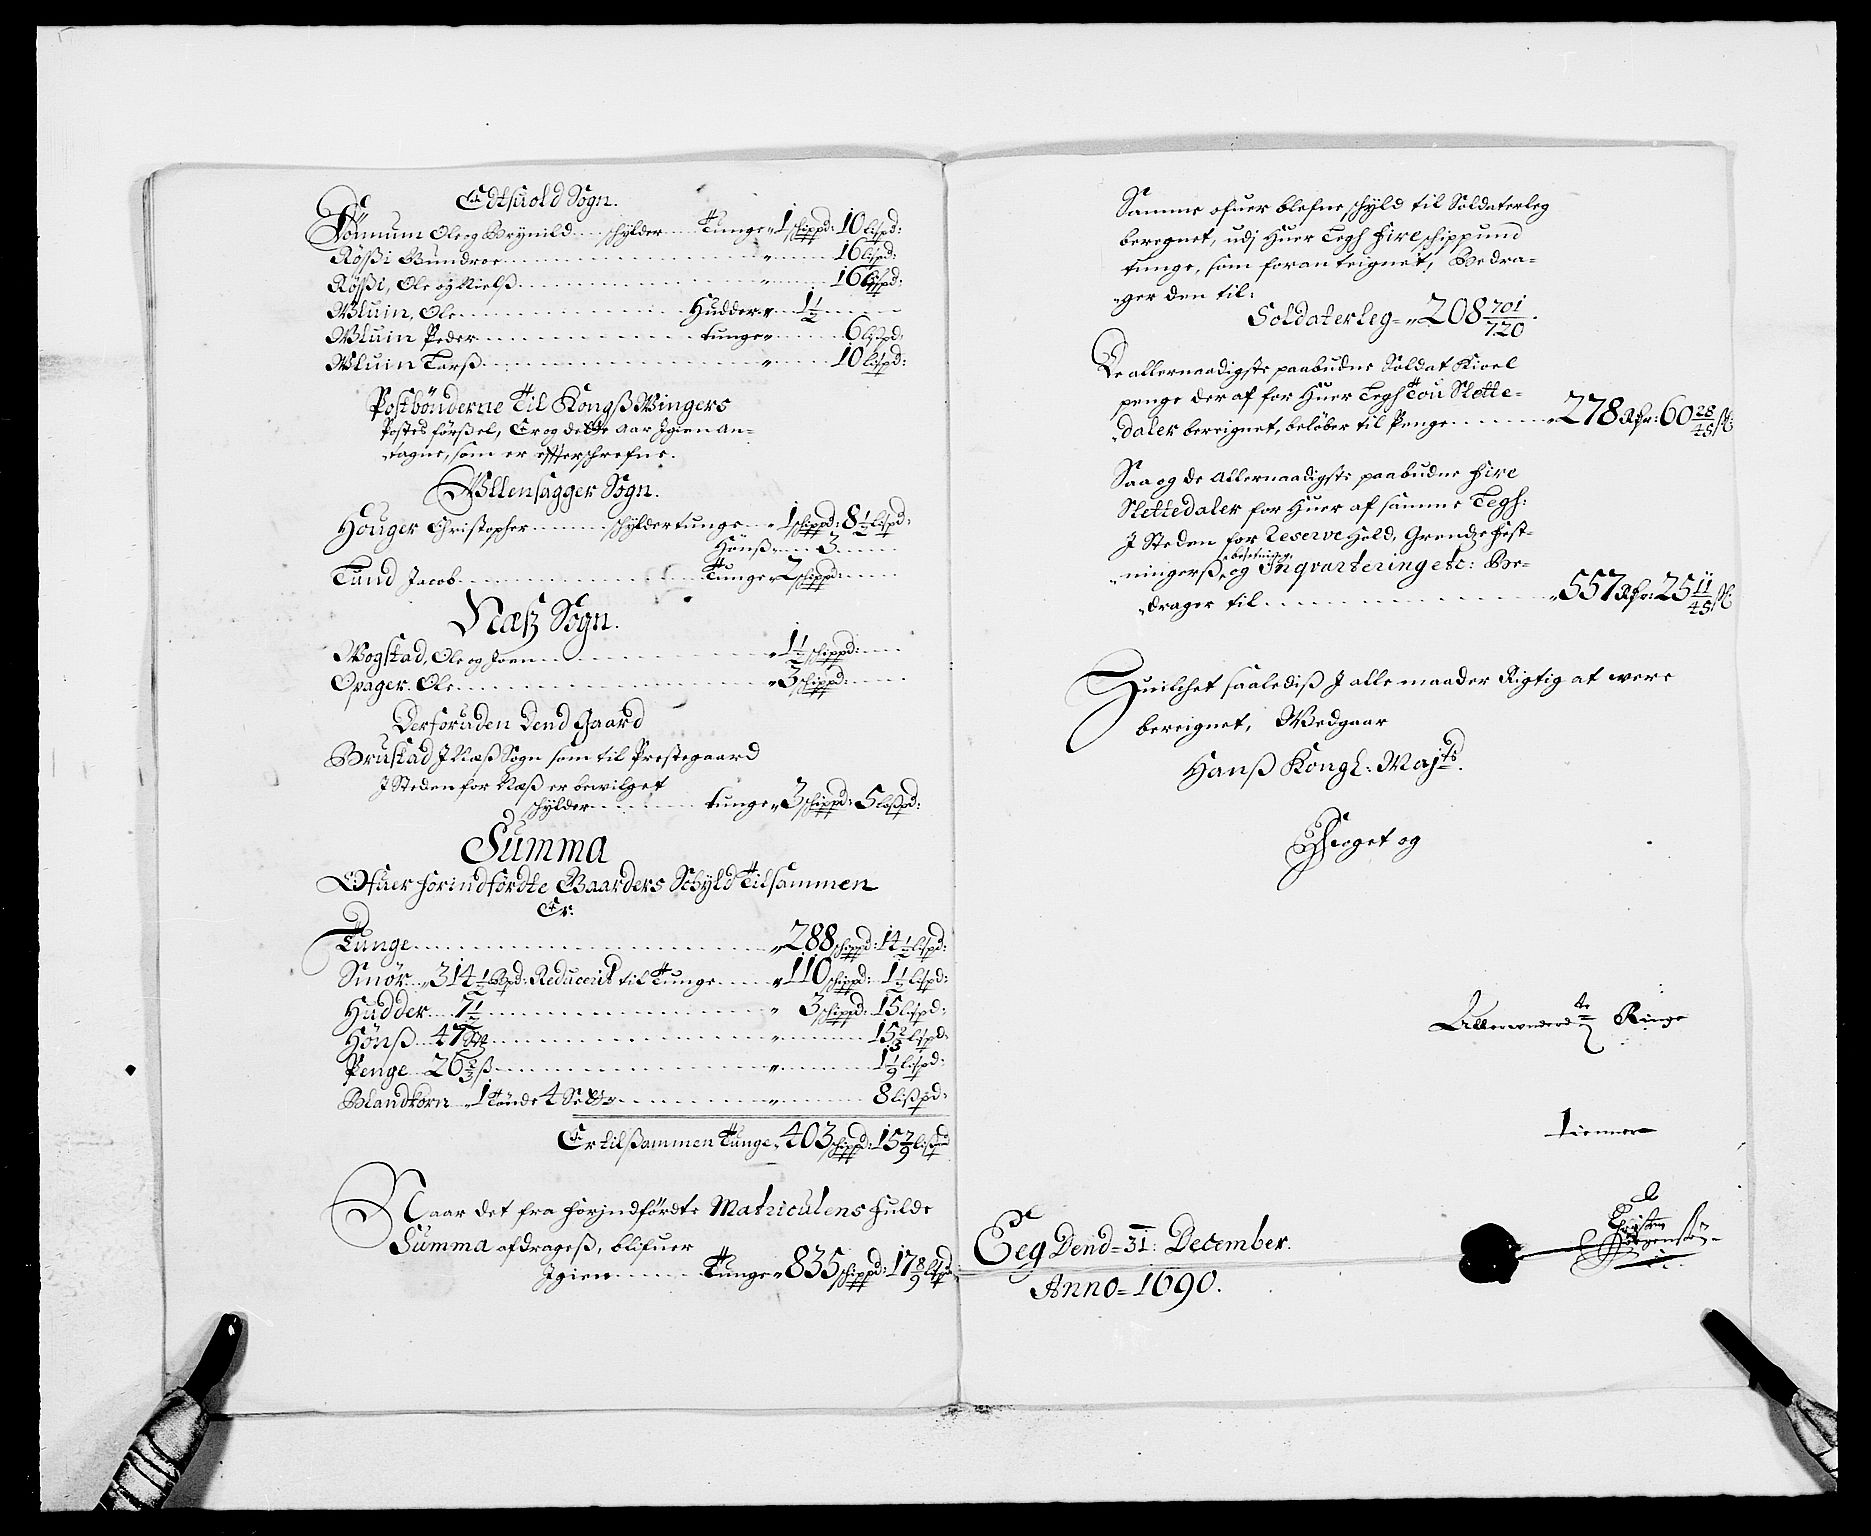 Edtsuold Sogn.
Tönnum Ole og Brynild schylder Tunge 1 schippd: 10 lispd:
Röszi Gundroe " 16 lispd:
Röszi, Ole og Nielsz " 16 lispd:
Wluin, Ole Hudder " 1½
Wluin Peder tunge " 6 lispd:
Wluin Larsz " 10 lispd:
Postbönderne Til Kongsz Wingers
Postes förszel, Er og dette Aar Igien An-
tagne, som er effterschrefne.
Wllensagger Sogn.
Houger Christopher schylder tunge " 1 schippd: 8½ lispd:
Hönsz 3
Lund Jacob Tunge " 2 schippd:
Næsz Sogn.
Wogstad, Ole og Joen " 1½ schippd:
Opager. Ole " 3 schippd:
Derforuden Dend Gaard
Brustad J Næsz Sogn som til Prestegaard
J Steden for Næsz er bewilget
schylder tunge " 3 schippd: 5 liszpd:
Summa
Ofuer forindfördte Gaarders Schyld Tilsammen
Er:
Tunge " 288 schippd: 14½ lispd:
Smör " 314½ Bpd: Reducerit til Tunge " 110 schippd: 1½ lispd:
Hudder 7½ " 3 schippd: 15 lispd:
Hönsz 47 Stk " 15⅔ lispd:
Penge 26⅔ sz " 1 1/9 lispd:
Blandkorn 1 tönde 4 Setr " 8 liszpd:
Er tilszammen Tunge " 403 schippd: 15 7/9 liszpund
Naar det fra forindfördte Matriculens fulde
Summa afdragesz, blifuer
Igien Tunge " 835 schippd: 17 8/9 lispd
Samme ofuer blefne schyld til Soldaterleg
beregnet, udj Huer Legh fire schippund
tunge, som foran teignet, Bedra-
ger den til:
Soldaterleg " 208 701/720.
De allernaadigste paabudne Soldat Kioel
penge der af for Huer Legh Tou Slette-
daler bereignet, beløber til Penge " 278 Rdr: 60 28/45 sz:
Saa og de Allernaadigste paabudne fire
Slettedaler for Huer af samme Legh:
J Steden for Reserve Hold, Grendze Fest-
ningersz besetning, og Inqvartering etc: Be-
drager til " 557 Rdr: 25 11/45 sz
Huilchet saaledisz J alle maader Rigtig at were
bereignet, Wedgaar
Hansz Kongl: Majts.
Eeg Dend 31: December.
Anno 1690.